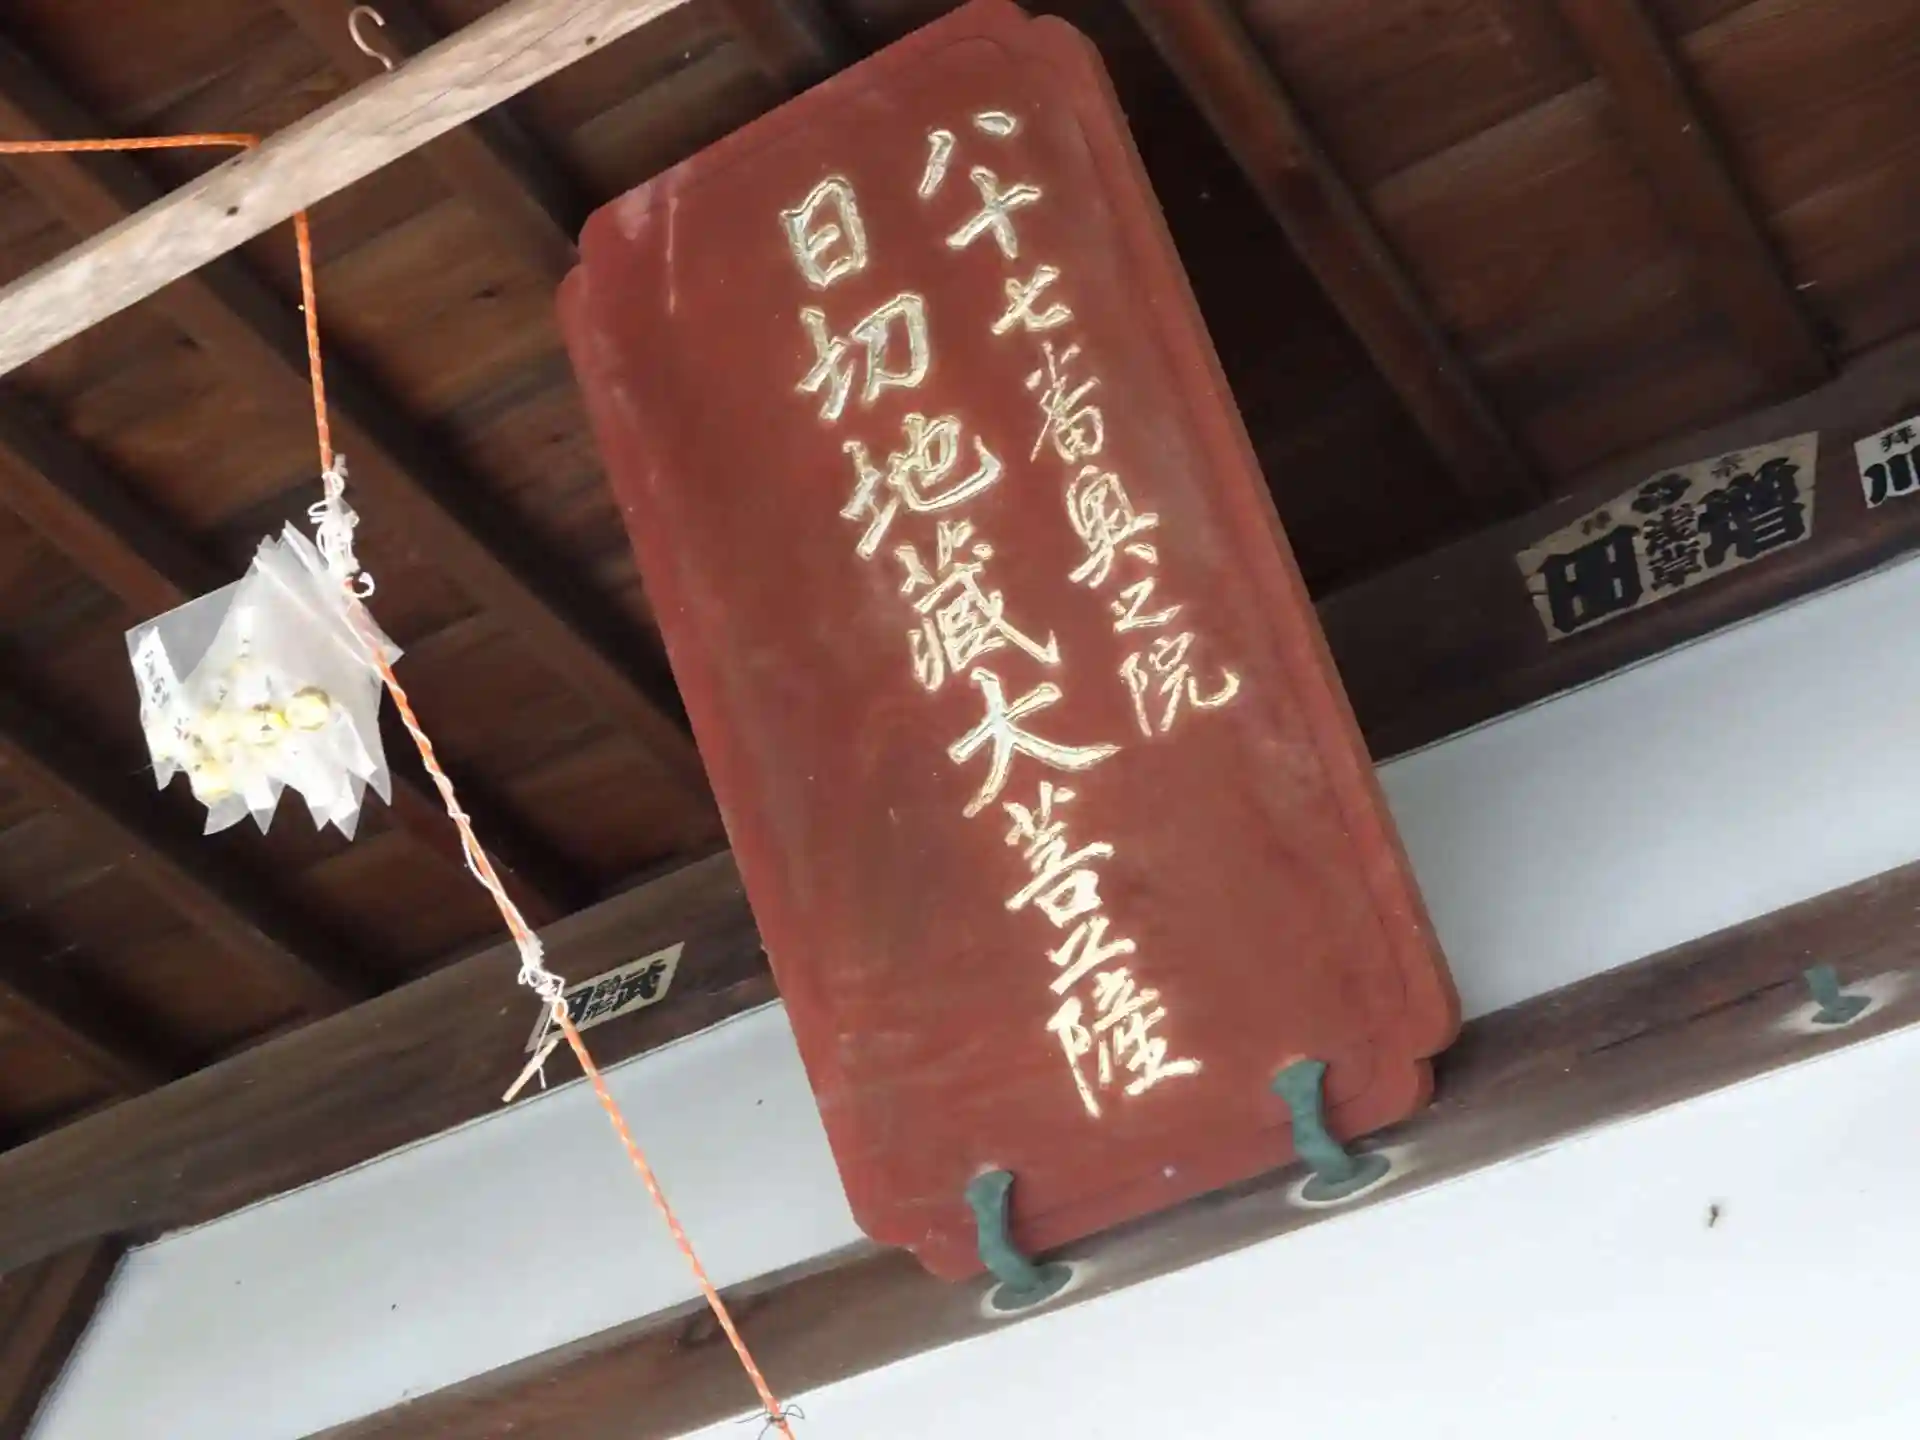 八十七番奥之院
日切地蔵大菩薩
増
浅草
田
拝
川
武
田